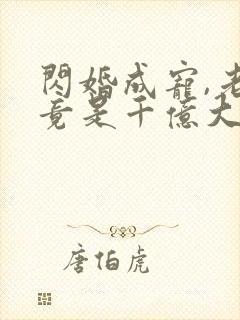 閃婚成寵,老
竟是千億大
唐伯虎